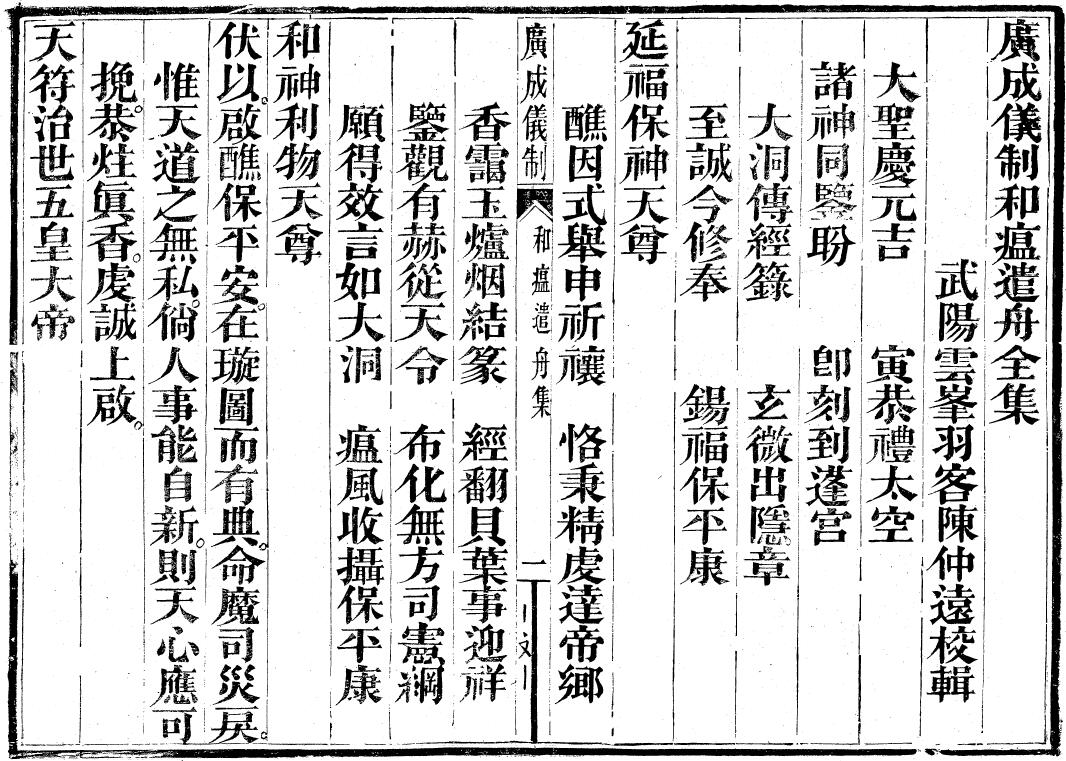 廣成儀制和瘟遣舟全集
武陽雲峯羽客陳仲遠校輯
大聖慶元吉　寅恭禮太空
諸神同鑒盼　卽刻到蓬宫
大洞傳經錄　玄微出隱章
至誠今修奉　錫福保平康
延福保神天尊
醮因式舉申祈禳　恪秉精虔達帝鄉
廣成儀制　和瘟遣舟集　二
香靄玉爐烟結篆　經翻貝葉事迎祥
鑒觀有赫從天令　布化無方司憲綱
願得效言如大洞　瘟風收攝保平康
和神利物天尊
伏以。啟醮保平安。在璇圖而有典。命魔司災戾。
惟天道之無私。倘人事能自新。則天心應可
挽。恭炷眞香。虔誠上啟。
天符治世五皇大帝